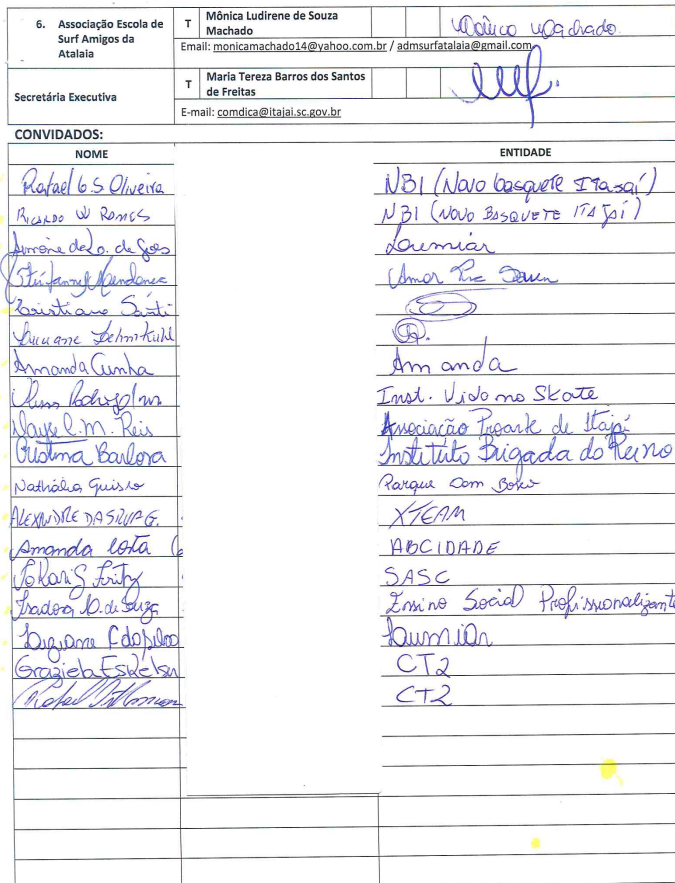 6. Associação Escola de Surf Amigos da Atalaia
T
Mônica Ludirene de Souza Machado
Mônica Machado
Email: monicamachado14@yahoo.com.br / admsurfatalaia@gmail.com
Secretária Executiva
T
Maria Tereza Barros dos Santos de Freitas
E-mail: comdica@itajai.sc.gov.br
CONVIDADOS:
NOME ENTIDADE
Rafael G S Oliveira NBI (Novo basquete Itajaí)
Ricardo W Ramos NBI (NOVO BASQUETE ITAJAÍ)
Simone de Goes
Mendonca Amor
Cristiano Santi
Luciane Lehmkuhl
Armanda Cunha Amanda
Rodrigo Inst. Vida no Skate
Nayse C. M. Reis Associação Proarte de Itajaí
Cristina Barbosa Instituto Brigada do Reino
Nathália Guisso Parque Dom Bosco
ALEXANDRE DA SILVA G. XTEAM
Amanda Costa ABCIDADE
Fritz SASC
Isadora D. de Souza Ensino Social Profissionalizante
Graziela Eskelsen CT2
Rafael CT2